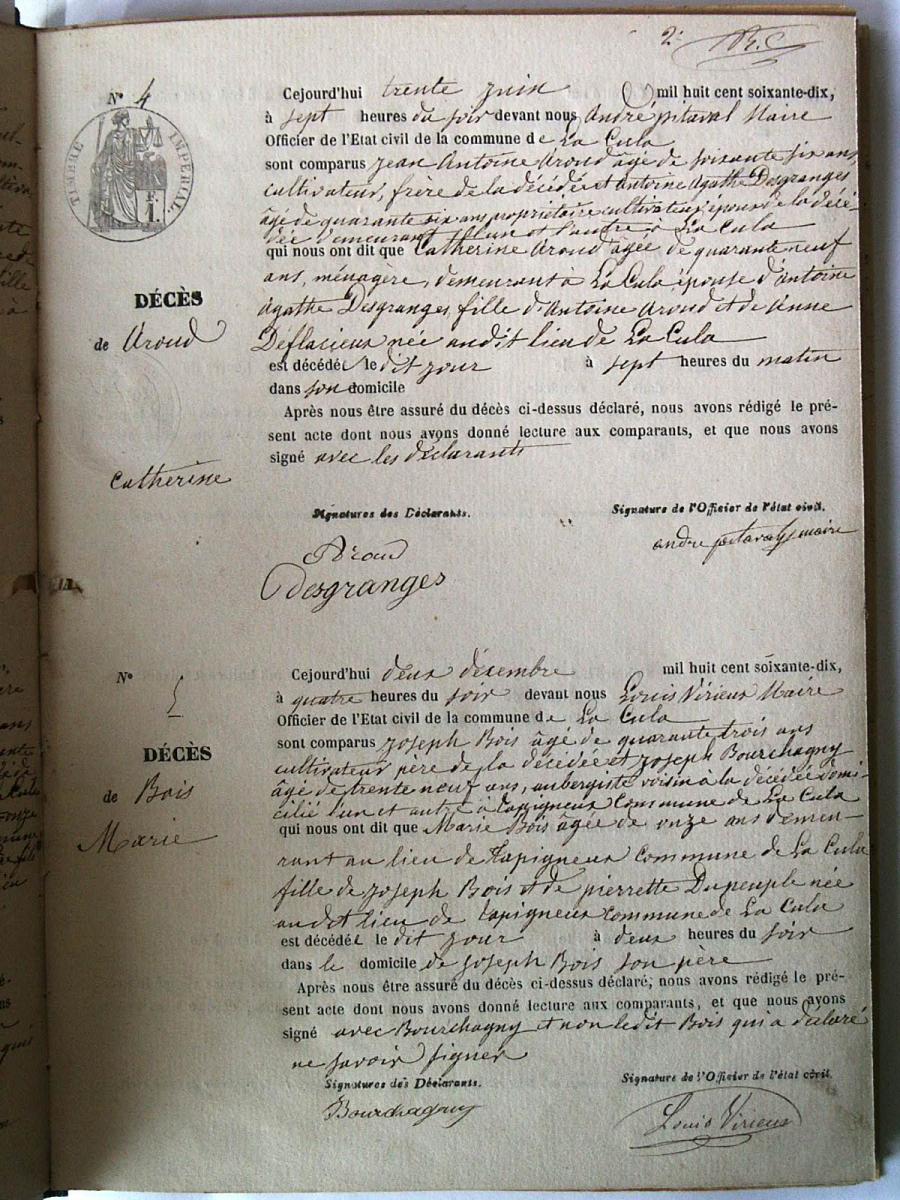 2e R.C
N° 4
TIMBRE IMPÉRIAL
Cejourd'hui trente juin mil huit cent soixante-dix,
à sept heures du soir devant nous André pitaval Maire
Officier de l'Etat civil de la commune de La Cula
sont comparus jean Antoine Aroud âgé de soixante six ans
cultivateur, frère de la décédée et antoine Agathe Desgranges
âgé de quarante six ans propriétaire cultivateur, époux de la décé-
dée demeurant l'un et l'autre à La Cula
qui nous ont dit que Catherine Aroud âgée de quarante neuf
ans, ménagère, demeurant à La Cula épouse d'antoine
Agathe Desgranges, fille d'Antoine Aroud et de Anne
Déflacieux née audit lieu de La Cula
DÉCÈS
de Aroud
Catherine
est décédée le dit jour à sept heures du matin
dans son domicile
Après nous être assuré du décès ci-dessus déclaré, nous avons rédigé le pré-
sent acte dont nous avons donné lecture aux comparants, et que nous avons
signé avec les déclarants
Signatures des Déclarants. Signature de l'Officier de l'état civil.
Aroud andre pitaval maire
Desgranges
N° 5
Cejourd'hui deux désembre mil huit cent soixante-dix,
à quatre heures du soir devant nous Louis Virieux Maire
Officier de l'Etat civil de la commune de La Cula
sont comparus joseph Bois âgé de quarante trois ans
cultivateur père de la décédée et joseph Bourchagny
âgé de trente neuf ans, aubergiste voisin à la décédée domi-
cilié l'un et autre à tapigneux Commune de La Cula
DÉCÈS
de Bois
Marie
qui nous ont dit que Marie Bois âgée de onze ans demeu-
rant au lieu de tapigneux Commune de La Cula
fille de joseph Bois et de pierrette Dupeuple née
audit lieu de tapigneux commune de La Cula
est décédée le dit jour à deux heures du soir
dans le domicile de joseph Bois son père
Après nous être assuré du décès ci-dessus déclaré; nous avons rédigé le pré-
sent acte dont nous avons donné lecture aux comparants, et que nous avons
signé avec Bourchagny et non ledit Bois qui a déclaré
ne savoir signer
Signatures des Déclarants. Signature de l'Officier de l'état civil.
Bourchagny Louis Virieux